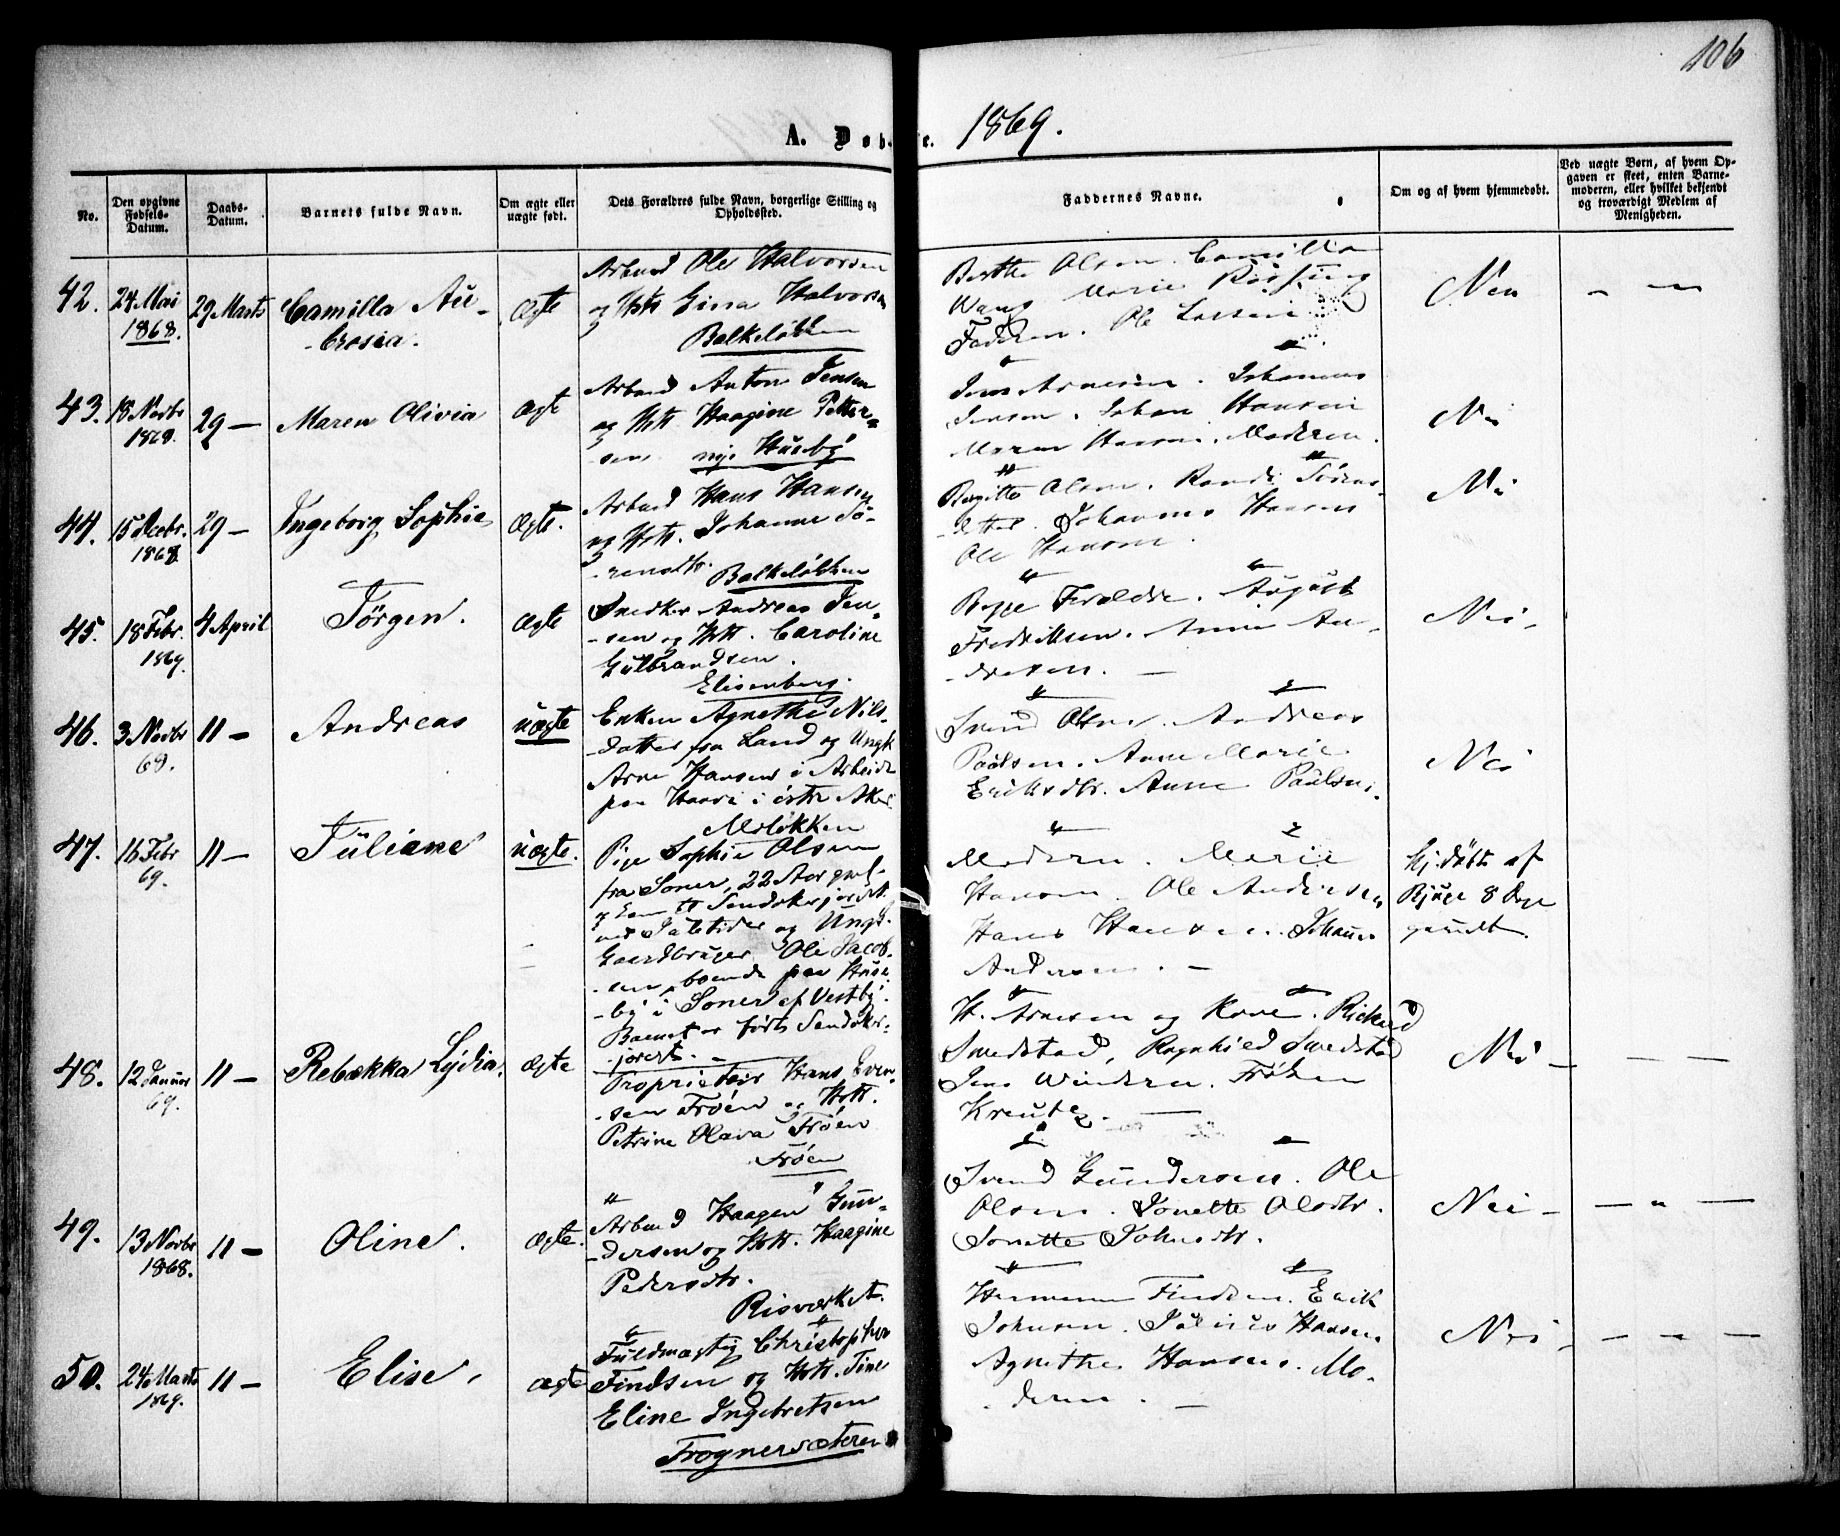 106
A. Døbte. 1869.
No.
Den opgivne Fødsels-Datum.
Daabs-Datum.
Barnets fulde Navn.
Om ægte eller uægte født.
Dets Forældres fulde Navn, borgerlige Stilling og Opholdssted.
Faddernes Navne.
Om og af hvem hjemmedøbt.
Ved uægte Børn, af hvem Opgaven er skeet, enten Barnemoderen, eller hvilket bekjendt og troværdigt Medlem af Menigheden.
42. 24 Mai 1868. 29 Marts Camilla Au-
-brosia.
Ægte
Arbmd Ole Halvorsen
og Hst Gina Halvorsen
Balkeløkken
Berthe Olsen. Camilla
Wang Marie
Faderen. Ole Larsen
Nei
43. 18 Novbr 1868. 29 — Maren Olivia
Ægte
Arbmd Anton Jensen
og Hst Haagine Petter-
-sen. nye Huseby
Jens Arnesen. Johannes
Jensen. Johan Hansen
Maren Hansen. Moderen.
Nei
44. 15 Decbr. 1868. 29 — Ingeborg Sophie
Ægte.
Arbmd Hans Hansen
og Hst. Johanne Sö-
-rensdtr. Balkeløkken
Birgitte Olsen. Randi Sörens-
-datter. Johannes Hansen
Ole Hansen.
Nei
45. 18 Febr. 1869. 4 April Jörgen.
Ægte
Snedker Andreas Jen-
-sen og Hst. Caroline
Gulbrandsen.
Elisenberg.
Begge Forældre. August
Fredriksen. Anne An-
-dresen. —
Nei.
46. 3 Novbr 68. 11 — Andreas
uægte
Enken Agnethe Nils-
-datter fra Land og Ungk
Arne Hansen i Arbeide
paa i östre Aker.
Meløkken
Svend Olsen. Andreas
Paulsen. Anne Marie
Eriksdtr. Anne Paulsen.
Nei
47. 16 Febr 69. 11 — Juliane
uægte.
Pige Sophie Olsen
fra Soner, 22 Aar gml.
ved og Ungk.
Gaardbruger Ole Jacob-
-sen, boende paa Huse-
-by i Soner af Vestby.
Barnet er förste
—
Moderen. Marie
Hansen. Ole Andersen
Hans Hansen. Johannes
Andersen. —
Hj.døbt af
8 Dage
gammelt.
48. 12 Januar 69. 11 — Rebækka Lydia.
Ægte
Proprietær Hans Even-
-sen Fröen og Hst.
Petrine Olava Fröen
Fröen
H. Arnesen og Kone. Rickard
Smedstad, Ragnhild Smedstad
Jens Winderen. Fröken
Kreutz. —
Nei —
49. 13 Novbr 1868. 11 — Oline.
Ægte.
Arbmd Haagen Gun-
-dersen og Hst. Haagine
Pedersdtr.
Risværket.
Svend Gundersen. Ole
Olsen. Jonette Olsdtr.
Jonette Johnsdtr.
Nei —
50. 24 Marts 1869. 11 — Elise.
Ægte
Fuldmægtig Christopher
Findsen og Hst. Tine
Eline Ingebretsen
Frognersæteren
Hermann Findsen. Erik
Johnsen. Julius Hansen
Agnethe Hansen. Mo-
-deren. —
Nei —